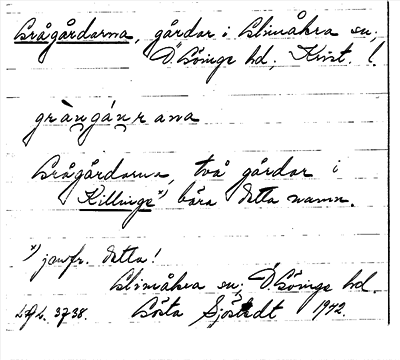 Grågårdarna, gårdar i Glimåkra sn;
Ö. Göinge hd, Krist. l.
gràngánrana
Grågårdarna, två gårdar i
Killinge*) bära detta namn.
*) jmfr. detta!
Glimåkra sn; Ö. Göinge hd.
Gösta Sjöstedt 1942.